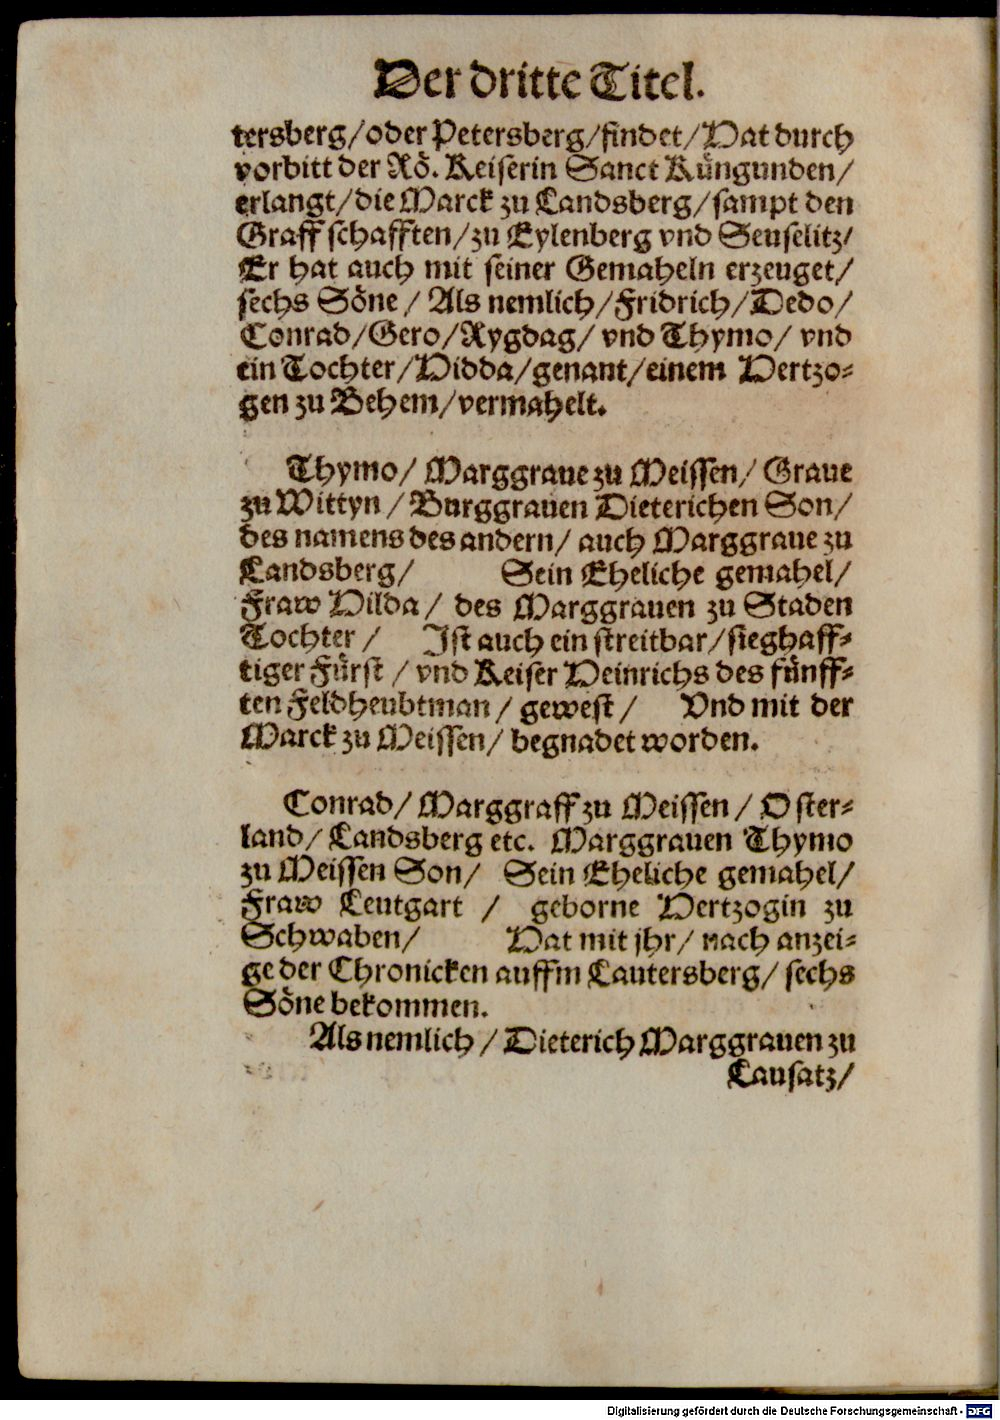 Der dritte Titel.
tersberg/oder Petersberg/findet/Hat durch
vorbitt der Rö. Keiserin Sanct Küngunden/
erlangt/die Marck zu Landsberg/sampt den
Graffschafften/zu Eylenberg vnd Seuselitz/
Er hat auch mit seiner Gemaheln erzeuget/
sechs Söne/ Als nemlich/Fridrich/Dedo/
Conrad/Gero/Rygdag/ vnd Thymo/ vnd
ein Tochter/Hidda/genant/einem Hertzo-
gen zu Behem/vermahelt.
Thymo/ Marggraue zu Meissen/ Graue
zu Wittyn/ Burggrauen Dieterichen Son/
des namens des andern/ auch Marggraue zu
Landsberg/ Sein Eheliche gemahel/
Fraw Hilda/ des Marggrauen zu Staden
Tochter/ Ist auch ein streitbar/sieghaff-
tiger Fürst/ vnd Keiser Heinrichs des fünff-
ten Feldheubtman/ gewest/ Vnd mit der
Marck zu Meissen/ begnadet worden.
Conrad/ Marggraff zu Meissen/ Oster-
land/ Landsberg etc. Marggrauen Thymo
zu Meissen Son/ Sein Eheliche gemahel/
Fraw Leutgart / geborne Hertzogin zu
Schwaben/ Hat mit jhr/ nach anzei-
ge der Chronicken auffm Lautersberg/ sechs
Söne bekommen.
Als nemlich/ Dieterich Marggrauen zu
Lausatz/
Digitalisierung gefördert durch die Deutsche Forschungsgemeinschaft - DFG